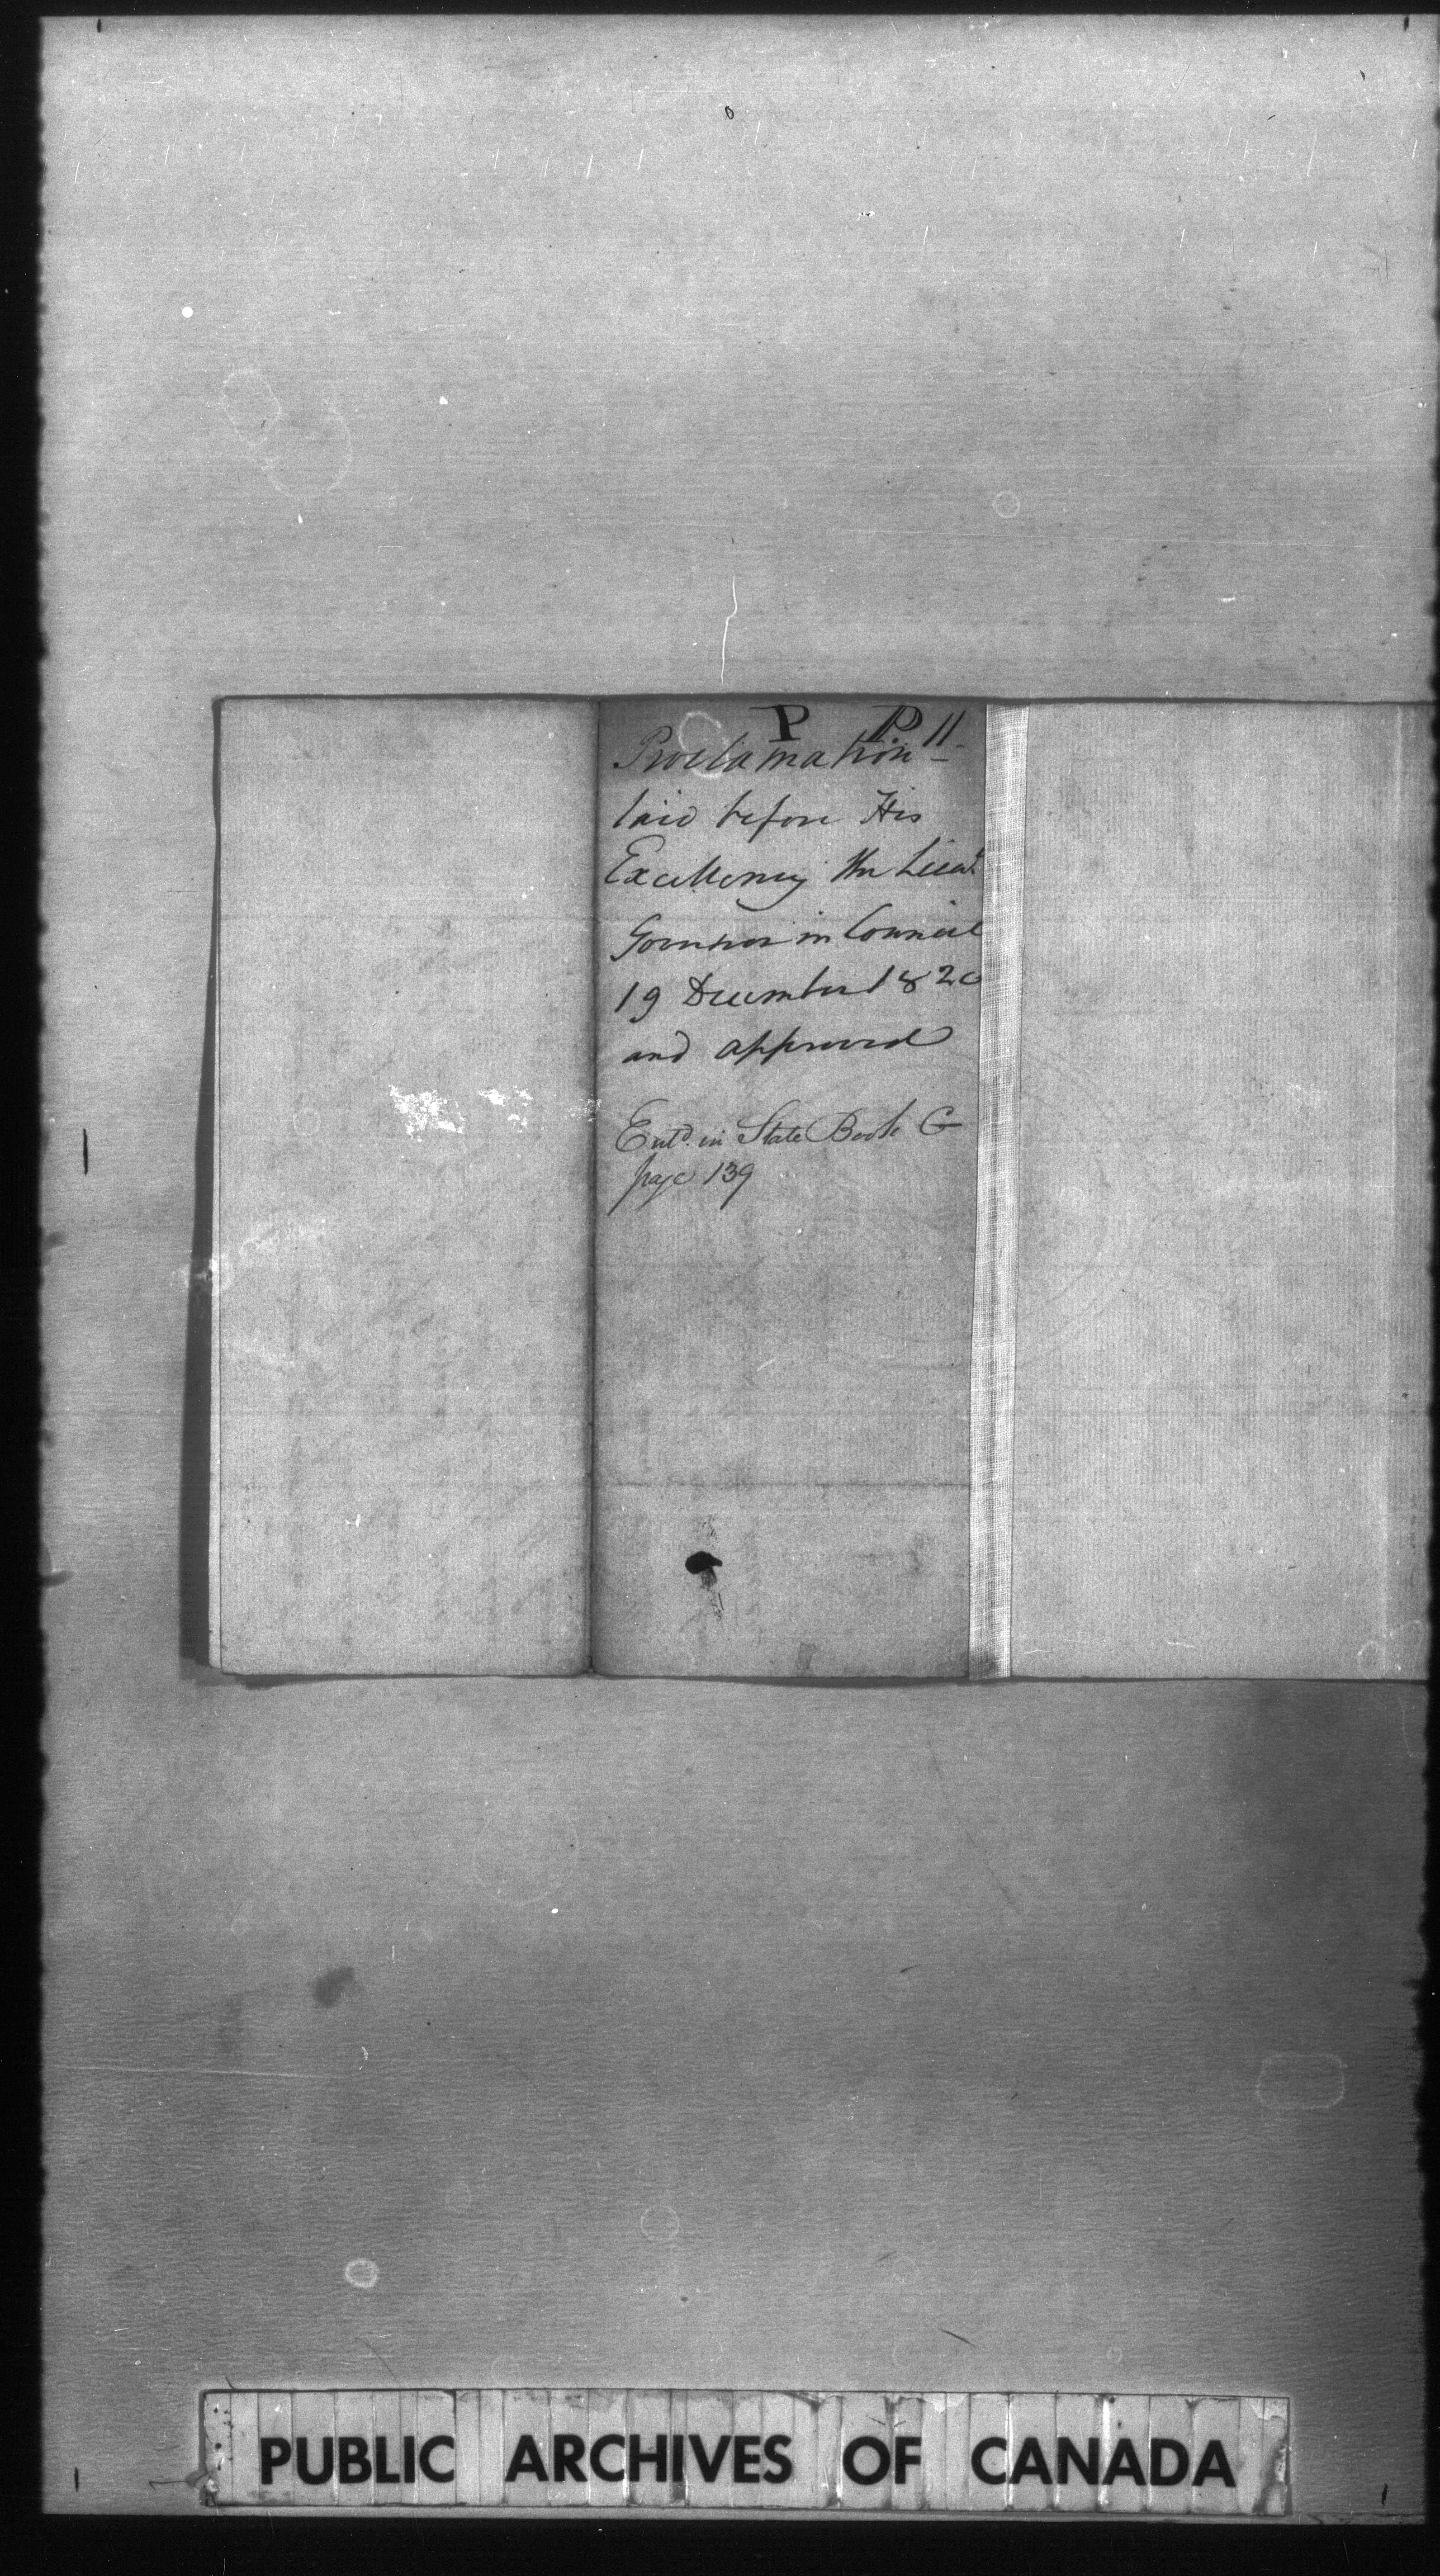 P P 11
Proclamation -
laid before His
Excellency the Lieut.
Governor in Council
19 December 1820
and approved
Entd. in State Book G
page 139
PUBLIC ARCHIVES OF CANADA